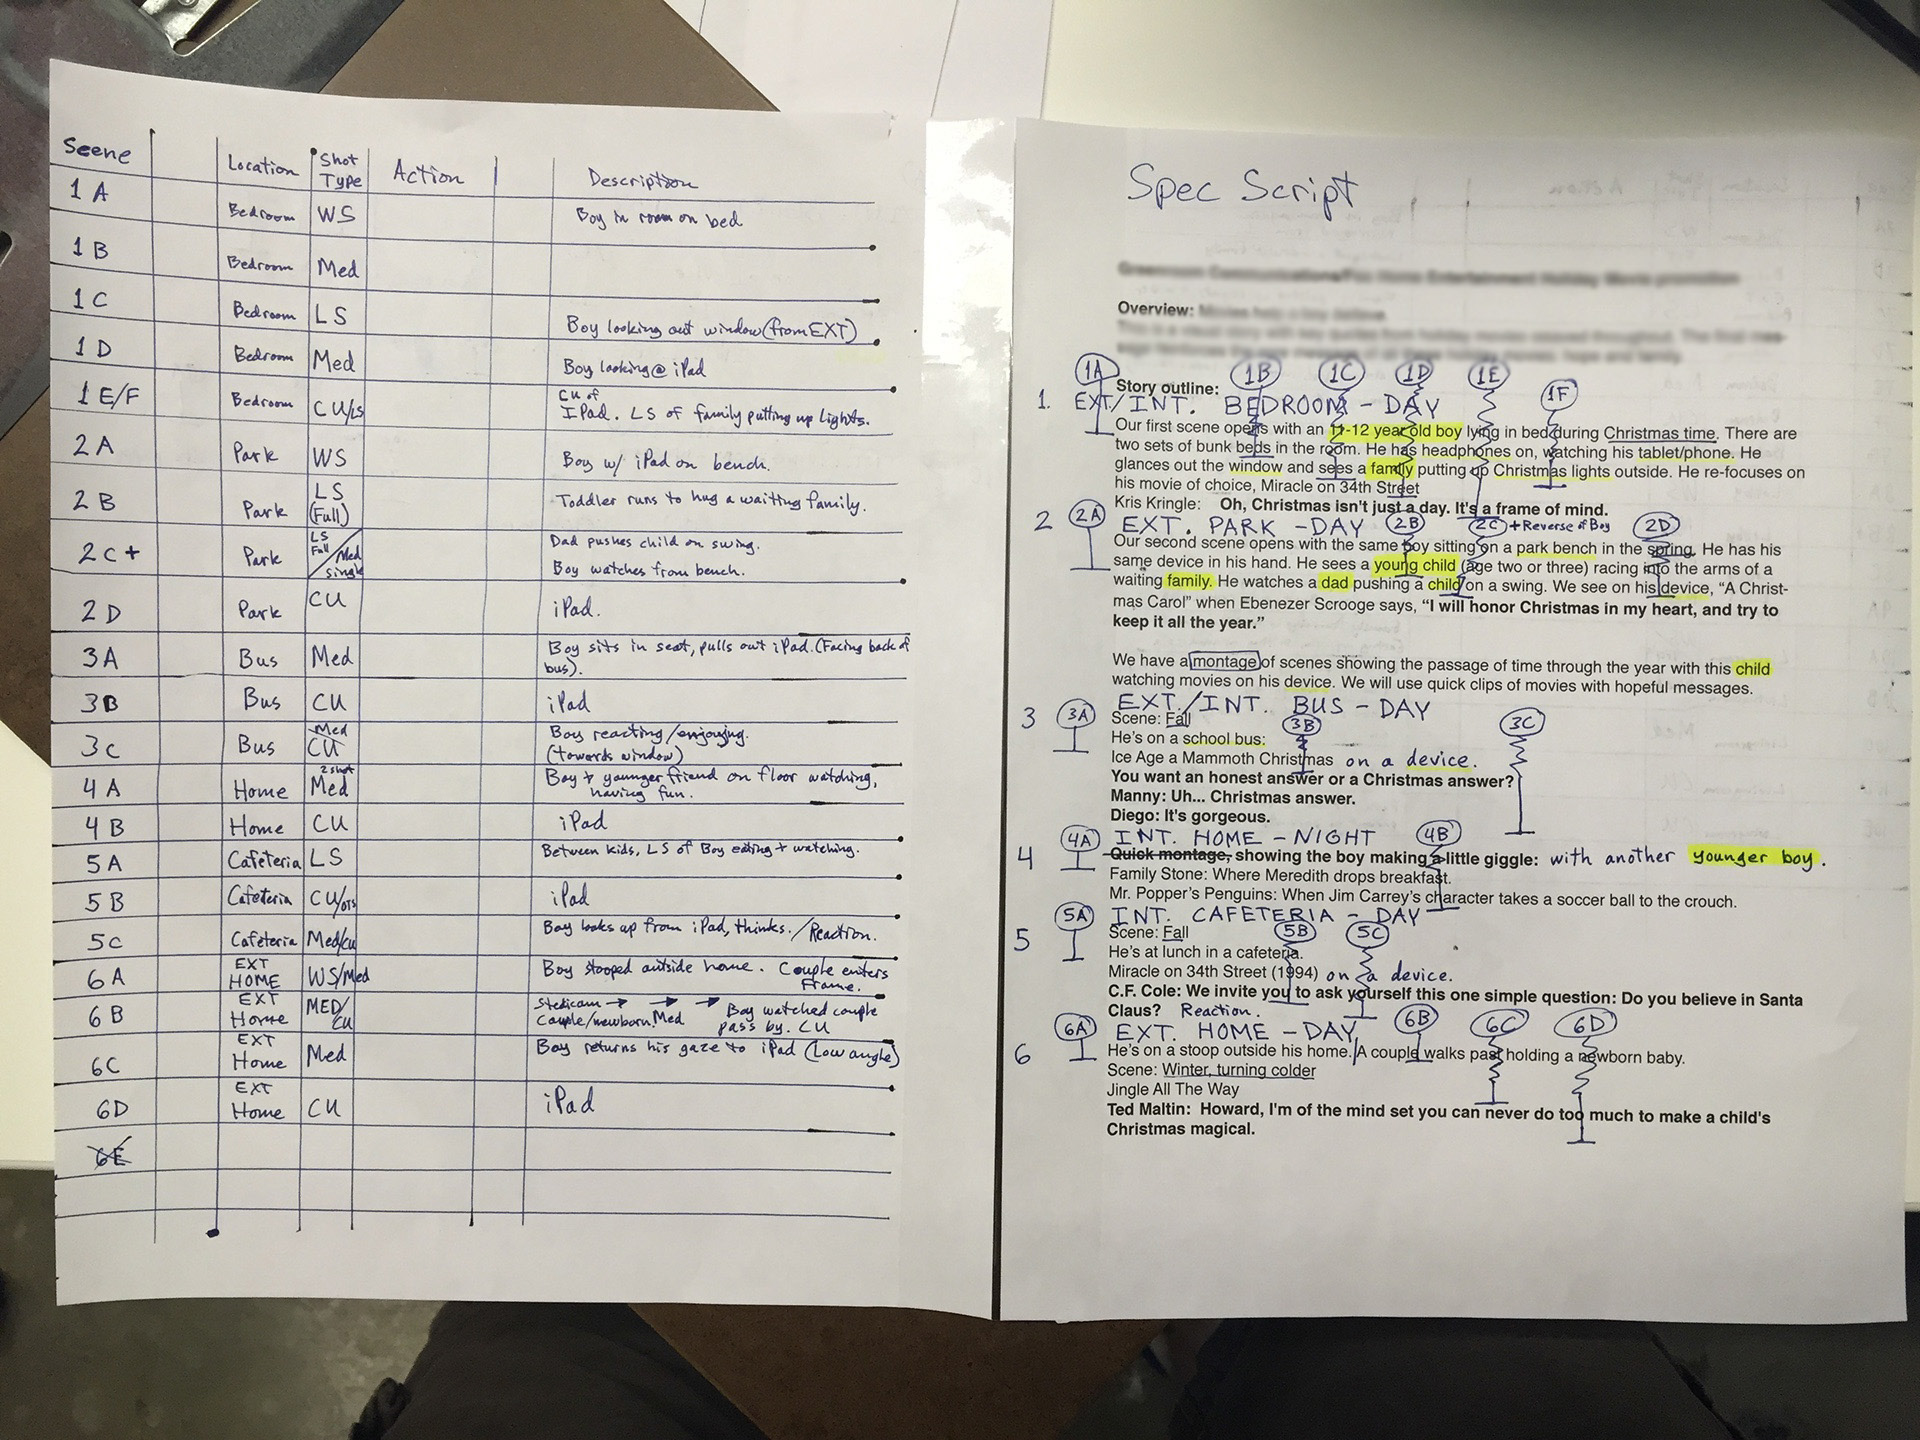 Scene Location Shot Type Action Description
1A Bedroom WS Boy in room on bed
1B Bedroom Med
1C Bedroom LS Boy looking out window (from EXT)
1D Bedroom Med Boy looking @ iPad
1E/F Bedroom CU/LS CU of IPad. LS of family putting up lights.
2A Park WS Boy w/ iPad on bench.
2B Park LS (Full) Toddler runs to hug a waiting family.
2C+ Park LS Full/Med single Dad pushes child on swing. Boy watches from bench.
2D Park CU iPad.
3A Bus Med Boy sits in seat, pulls out iPad. (Facing back of bus).
3B Bus CU iPad
3C Bus Med CU Boy reacting/enjoying. (towards window)
4A Home 2 shot Med Boy + younger friend on floor watching, having fun.
4B Home CU iPad
5A Cafeteria LS Between kids, LS of Boy eating + watching.
5B Cafeteria CU/OTS iPad
5C Cafeteria Med/CU Boy looks up from iPad, thinks./Reaction.
6A EXT HOME WS/Med Boy stooped outside home. Couple enters Frame.
6B EXT Home MED/CU Stedicam → → → Couple/newborn. Med Boy watched couple pass by. CU
6C EXT Home Med Boy returns his gaze to iPad (Low angle)
6D EXT Home CU iPad
6E
Spec Script
Overview:
1A 1B 1C 1D 1E 1F
Story outline:
1. EXT/INT. BEDROOM - DAY
Our first scene opens with an 11-12 year old boy lying in bed during Christmas time. There are
two sets of bunk beds in the room. He has headphones on, watching his tablet/phone. He
glances out the window and sees a family putting up Christmas lights outside. He re-focuses on
his movie of choice, Miracle on 34th Street
Kris Kringle: Oh, Christmas isn't just a day. It's a frame of mind.
2 2A EXT. PARK - DAY 2B 2C + Reverse of Boy 2D
Our second scene opens with the same boy sitting on a park bench in the spring. He has his
same device in his hand. He sees a young child (age two or three) racing into the arms of a
waiting family. He watches a dad pushing a child on a swing. We see on his device, “A Christ-
mas Carol” when Ebenezer Scrooge says, “I will honor Christmas in my heart, and try to
keep it all the year.”
We have a montage of scenes showing the passage of time through the year with this child
watching movies on his device. We will use quick clips of movies with hopeful messages.
EXT./INT. BUS - DAY
3 3A Scene: Fall 3B 3C
He's on a school bus:
Ice Age a Mammoth Christmas on a device.
You want an honest answer or a Christmas answer?
Manny: Uh... Christmas answer.
Diego: It's gorgeous.
4A INT. HOME - NIGHT 4B
4 Quick montage, showing the boy making a little giggle: with another younger boy.
Family Stone: Where Meredith drops breakfast.
Mr. Popper's Penguins: When Jim Carrey's character takes a soccer ball to the crouch.
5A INT. CAFETERIA - DAY
5 Scene: Fall 5B 5C
He's at lunch in a cafeteria.
Miracle on 34th Street (1994) on a device.
C.F. Cole: We invite you to ask yourself this one simple question: Do you believe in Santa
Claus? Reaction.
6A EXT. HOME - DAY 6B 6C 6D
6 He's on a stoop outside his home. A couple walks past holding a newborn baby.
Scene: Winter, turning colder
Jingle All The Way
Ted Maltin: Howard, I'm of the mind set you can never do too much to make a child's
Christmas magical.